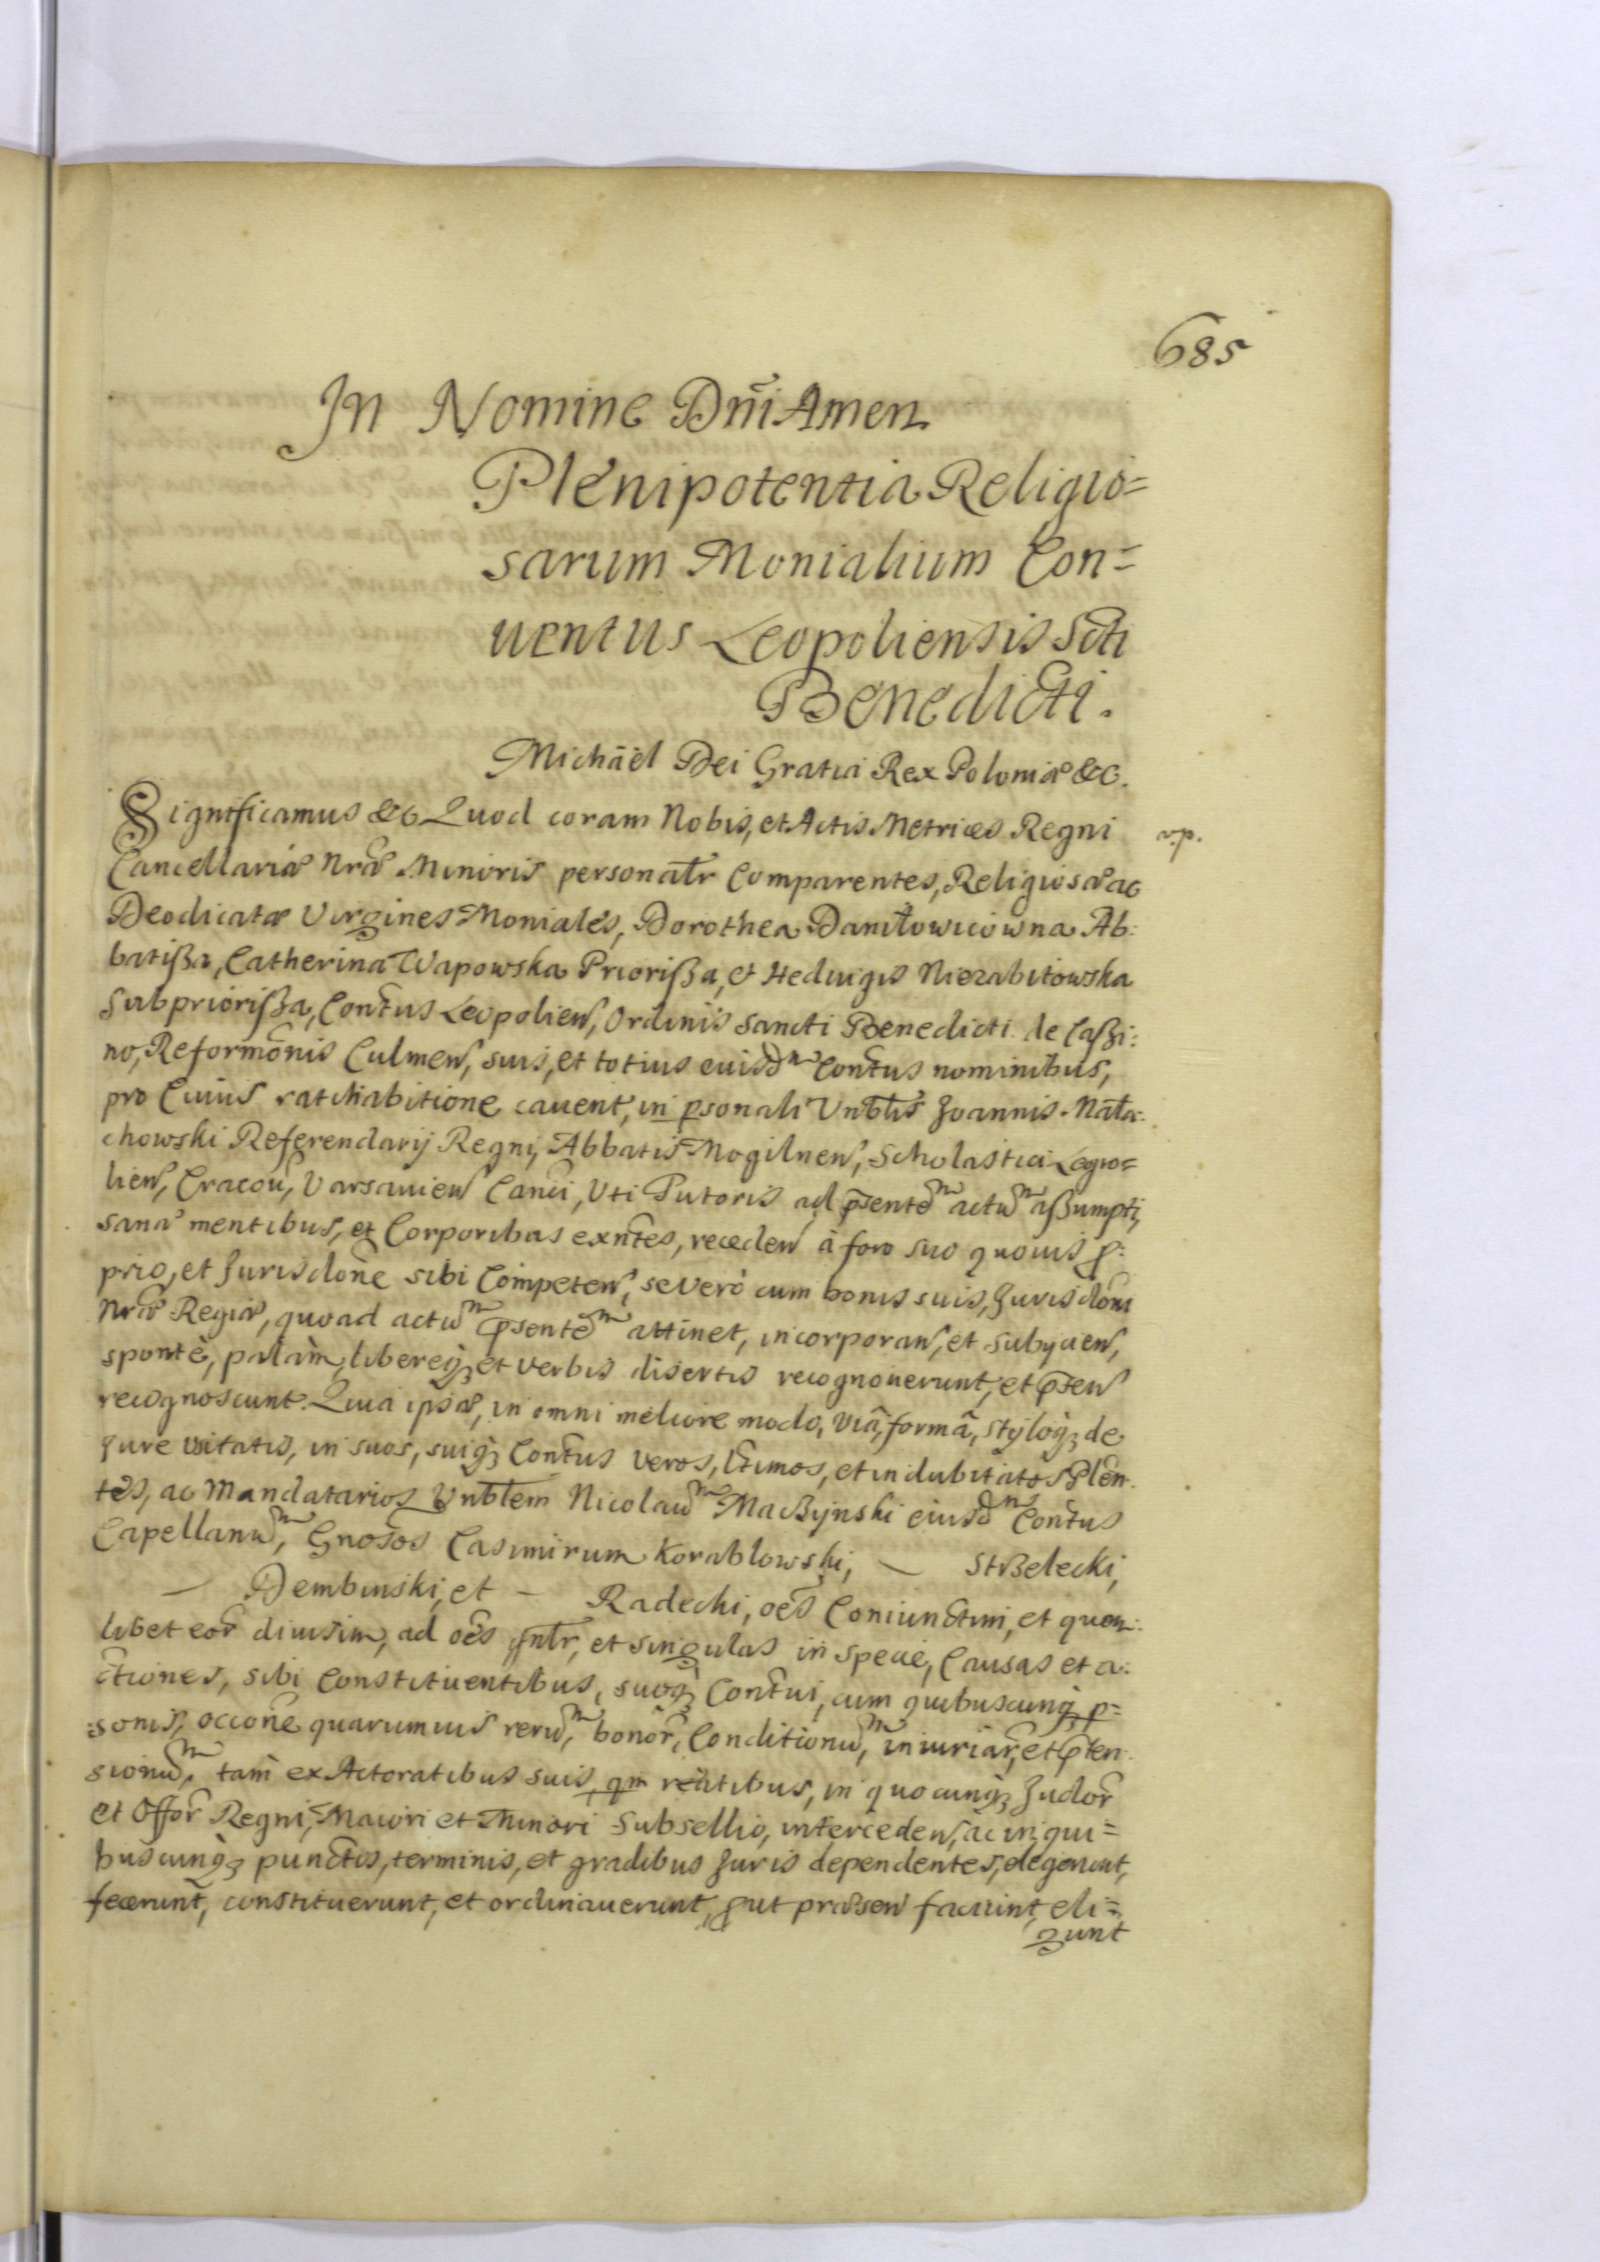 685
In Nomine Dnĩ Amen
Plenipotentia Religio=
sarum Monialium Con=
uentus Leopoliensis Scti
Benedicti.
Michäel Dei Gratia Rex Poloniæ &c.
Significamus &c Quod coram Nobis, et Actis Metrices Regni
v.p.
Cancellariæ Nræ Minoris personalr Comparentes, Religiosæ ac
Deodicatæ Virgines Moniales, Dorothea Daniłowicowna Ab:
batißa, Catherina Wapowska Priorißa, et Heduigis Niezabitowska
Subpriorißa, Contus Leopolien, Ordinis Sancti Benedicti de Caßi:
no, Reformonis Culmen, suis, et totius eiusdm Contus nominibus,
pro Cuius ratihabitione cavent, in psonali Vnblis Joannis Mała:
chowski Referendarij Regni, Abbatis Mogilnen, Scholastici
lien, Cracou, Varsavien Canci, Uti Tutoris ad psentem actum aßumpti,
sanæ mentibus, et Corporibus exntes, receden à foro suo quouis p:
prio, et Jurisdone sibi Competen, se vero cum bonis suis, Jurisdoni
Nræ Regiæ, quoad actum psentem attinet, incorporan, et subycien,
sponte, palàm, libereq3 et verbis disertis recognouerunt, et psen
recognoscunt. Quia ipsæ, in omni meliore modo, viâ, formâ, styloq3 de
Jure usitatis, in suos, suiq3 Contus veros, ltimos, et indubitatos Plen
tes, ac Mandatarios Vnblem Nicolaum Maczynski eiusdm Contus
Capellanum, Gnosos Casimirum Korablowski, — Strzelecki,
— Dembinski, et — Radecki, oes Coniunctim, et quem:
libet eor diuisim, ad oes gnlr, et singulas in specie, Causas et a:
ctiones, sibi Constituentibus, suoq3 Contui, cum quibuscunq3 p=
sonis, occione quarumuis rerum, bonor, Conditionum, iniuriar, et pten
sionum, tam ex Actoratibus suis, qm reatibus, in quocunq3 Judor
et Offor Regni, Maiori et Minori Subsellio, interceden, ac in qui=
buscunq3 punctis, terminis, et gradibus Juris dependentes, elegerunt,
fecerunt, constituerunt, et ordinauerunt, put præsen faciunt, eli=
gunt